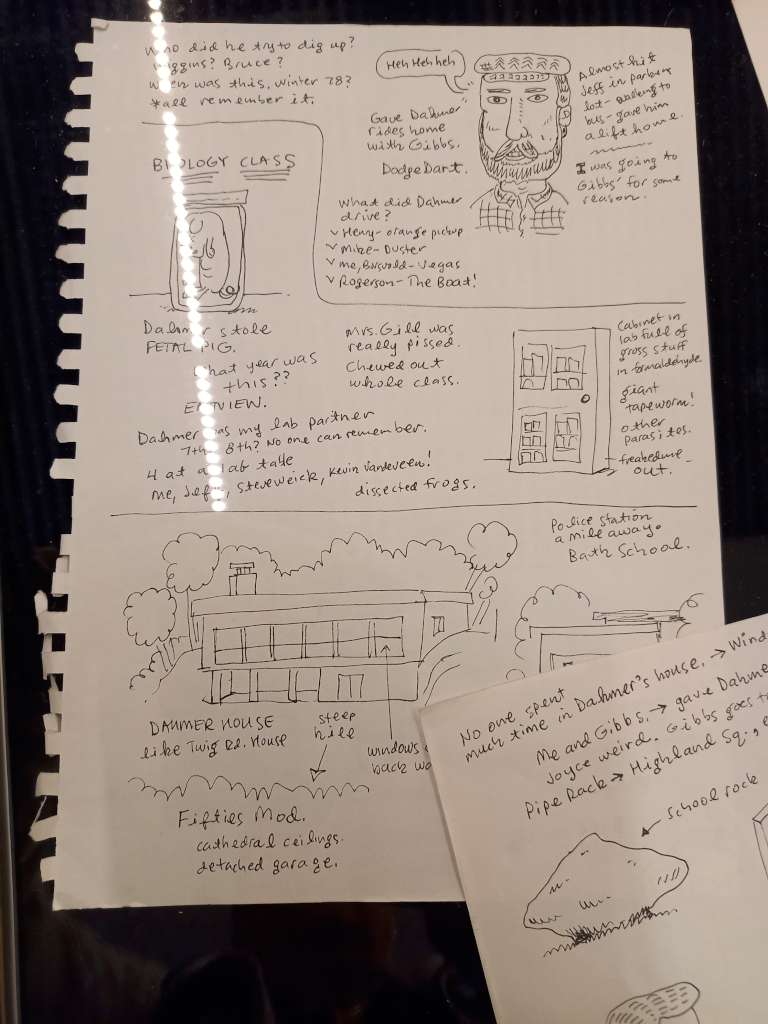 Who did he try to dig up?
Higgins? Bruce?
When was this, winter 78?
all remember it.
Heh Heh heh
Gave Dahmer
rides home
with Gibbs.
Dodge Dart.
Almost hit
Jeff in parking
lot-
bus- gave him
a lift home.
I was going to
Gibbs' for some
reason.
What did Dahmer
drive?
✓ Henry- orange pickup
✓ Mike- Duster
✓ me, - Vegas
✓ Rogerson- The Boat!
BIOLOGY CLASS
Dahmer stole
FETAL PIG.
What year was
this??
Mrs. Gill was
really pissed.
Chewed out
whole class.
Cabinet in
lab full of
gross stuff
in formaldehyde
giant
tapeworm!
other
parasites.
freaked me
out.
Dahmer was my lab partner
7th 8th? No one can remember.
4 at a lab table
me, Jeff, Steve Weick, Kevin Vandeveen!
dissected frogs.
Police station
a mile away.
Bath School.
DAHMER HOUSE
like Twig Rd. House
steep
hill
windows
back
Fifties Mod.
cathedral ceilings.
detached garage.
No one spent
much time in Dahmer's house. →
Me and Gibbs. → gave Dahmer
Joyce weird. Gibbs goes to
Pipe Rack → Highland Sq.,
School rock